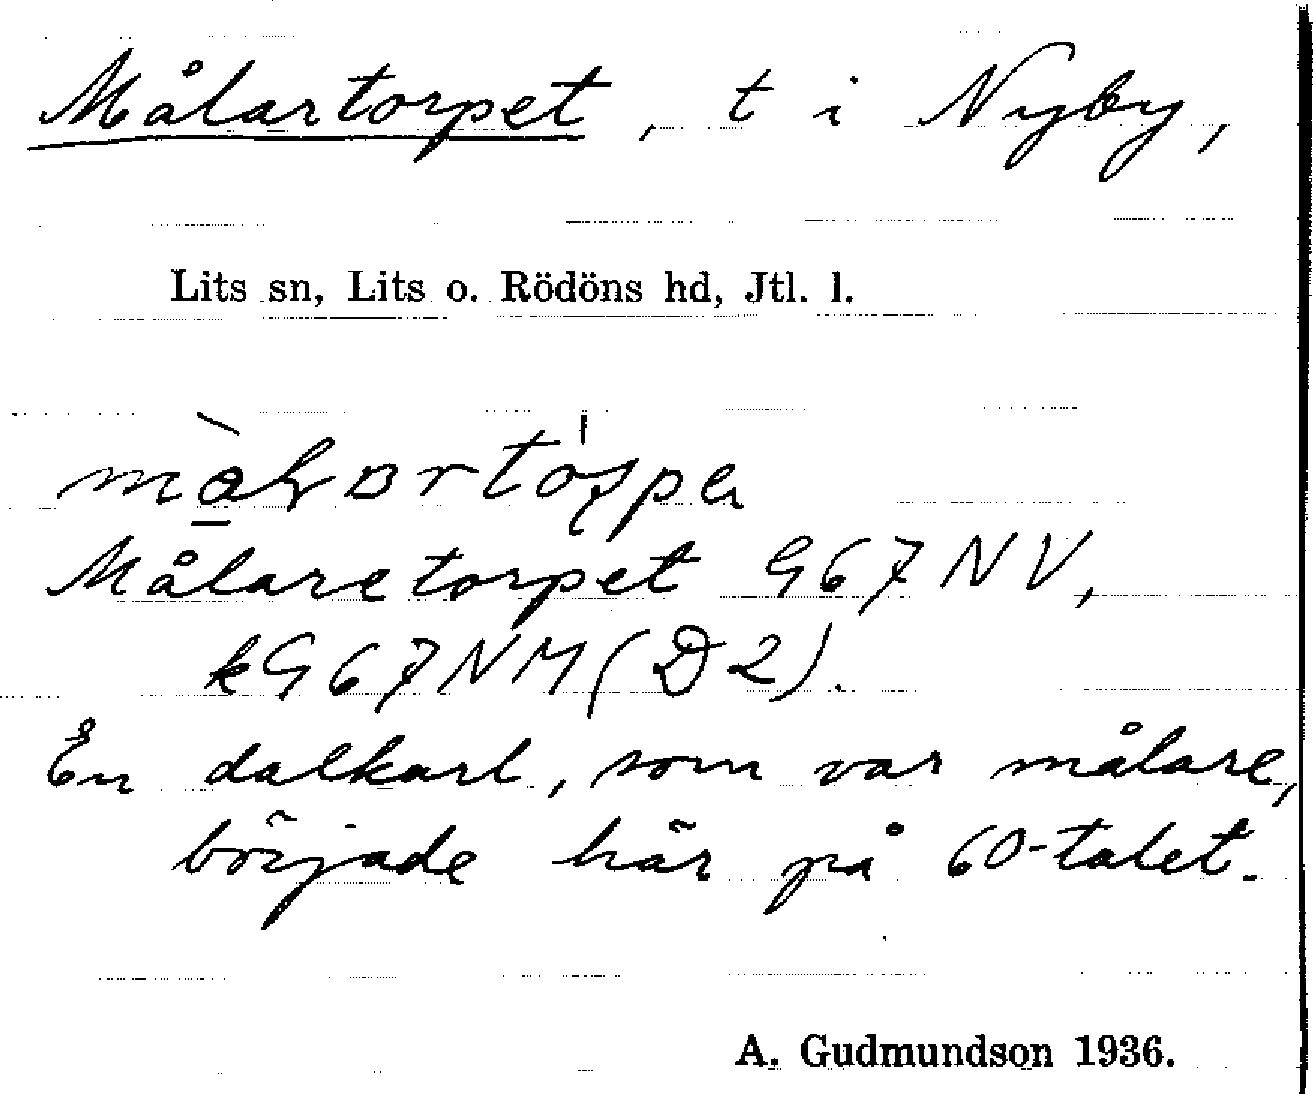 Målartorpet, t i Nyby,
Lits sn, Lits o. Rödöns hd, Jtl. l.
Målaretorpet G67NV,
kG67NM(D2).
En dalkarl, som var målare,
började här på 60-talet.
A. Gudmundson 1936.